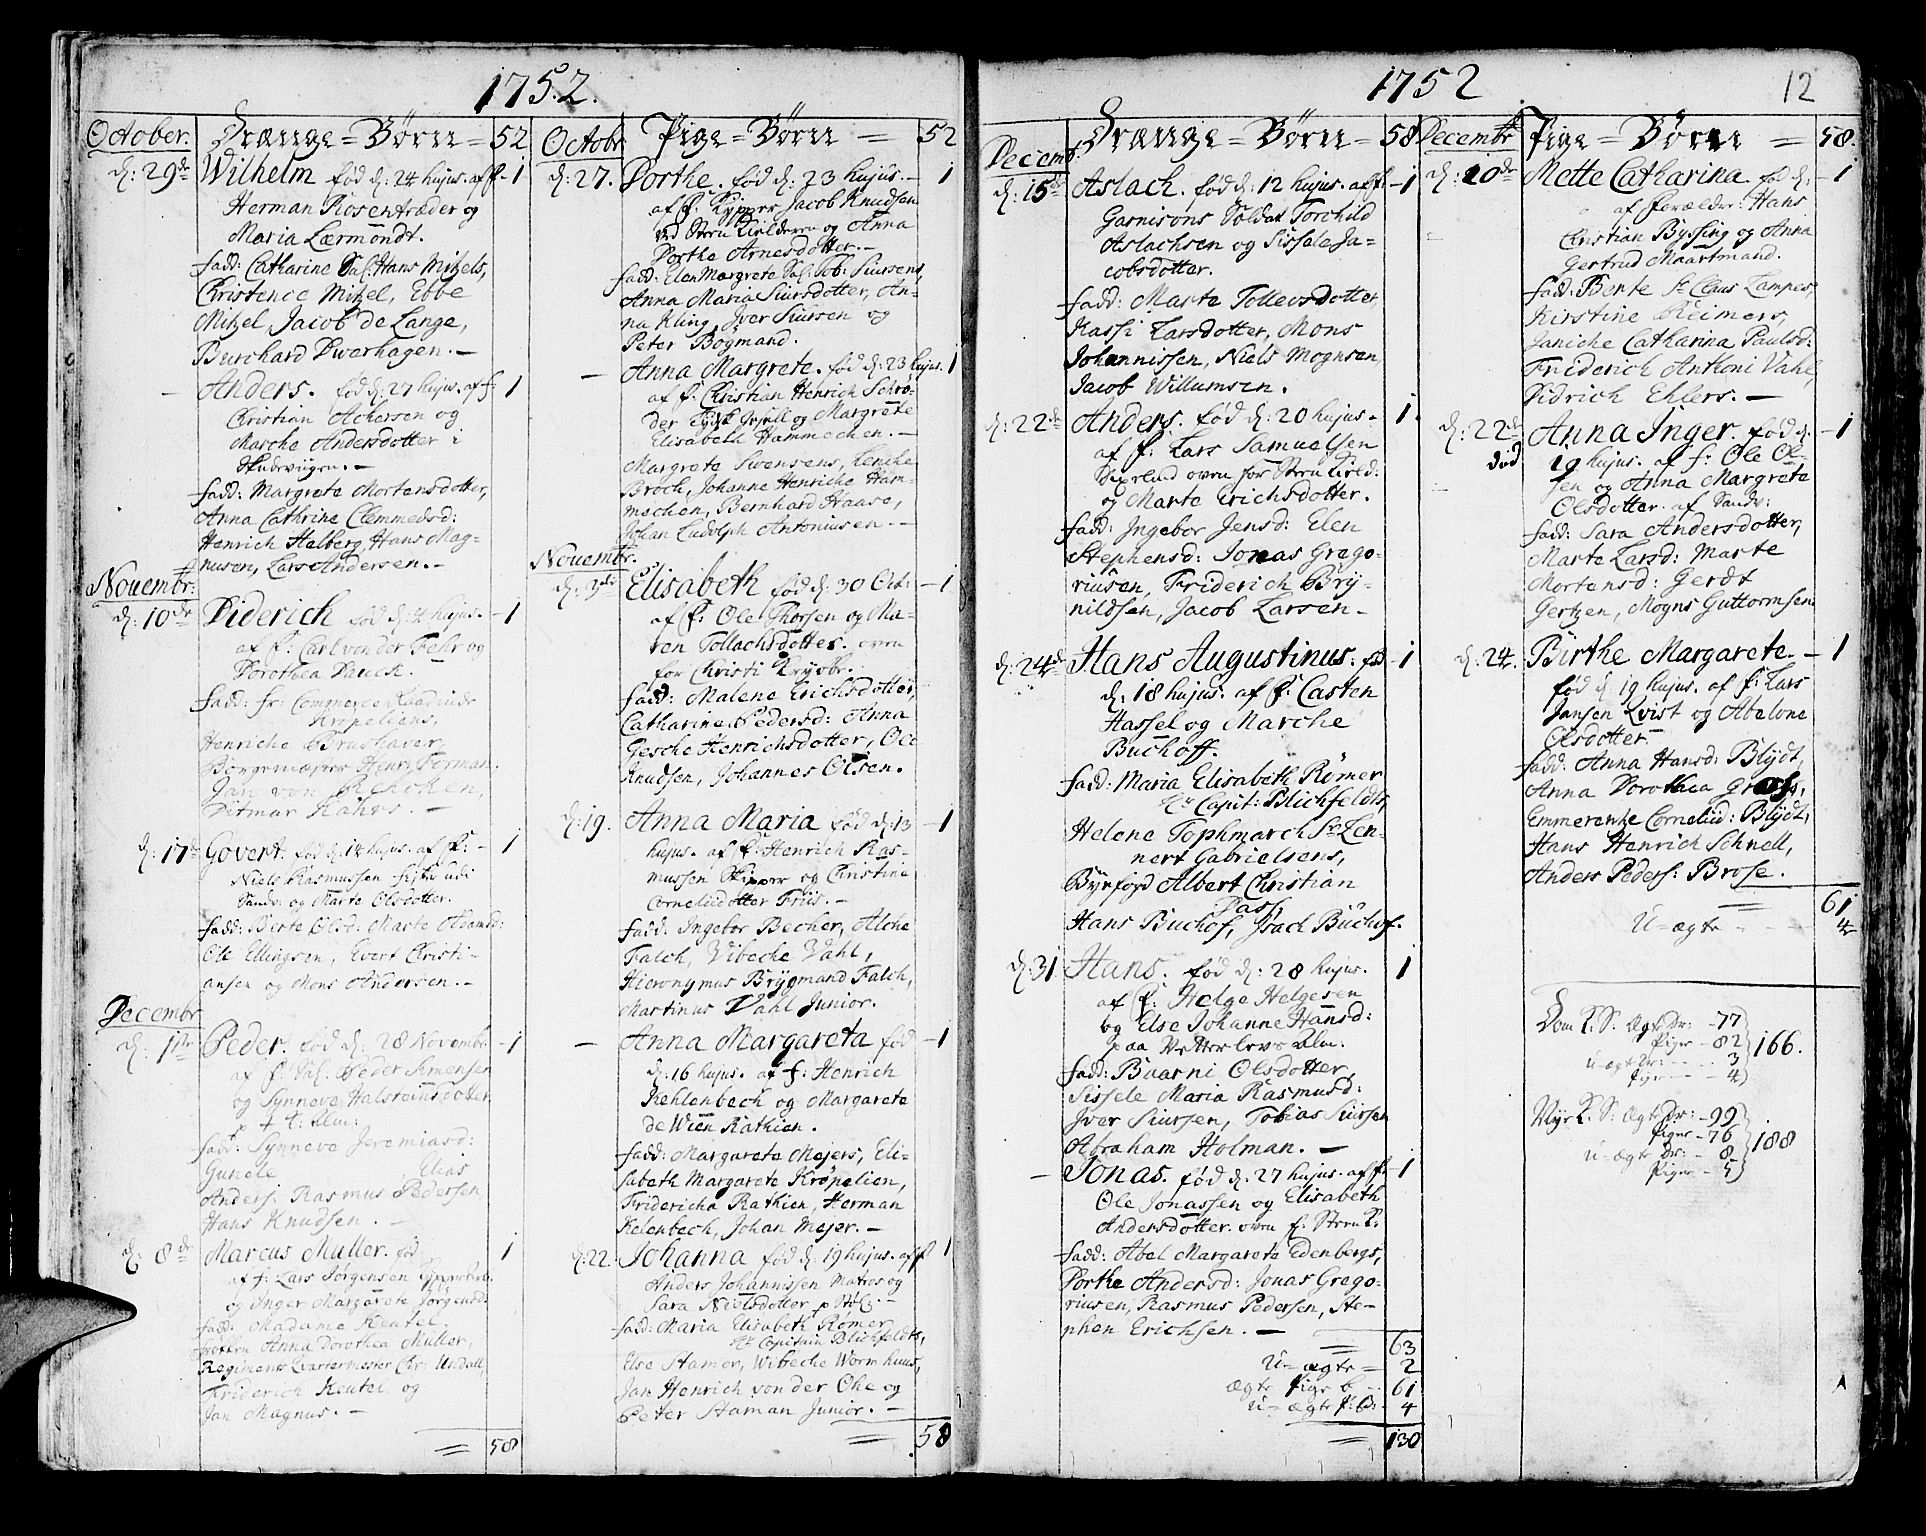 1752.
October. Drænge=Børn= 52
d: 29de Wilhelm fød d: 24 hujus. af f: -1
Herman Rosentræder og
Maria Lærmondt.
fadd: Catharine Sal. Hans Mitzels,
Christence Mitzel, Ebbe
Mitzel, Jacob de Lange,
Burchard Dwerhagen. -
- Anders. fød d: 27 hujus. af f: 1
Christian Achersen og
Marche Andersdotter i
Skudeviigen. -
fadd: Margrete Mortensdotter,
Anna Cathrine Clemmedsd:
Henrich Helberg, Hans Mag-
nusen, Lars Andersen. -
Novembr:
d: 10de Diderich fød d: 4 hujus. -1
af f: Carl von der Fehr og
Dorothea Pauch.
fadd: fr: Commerce Raadinde
Kröpeliens,
Henriche Brushaver,
Borgemester Henr: Forman.
Jan von Rehoken,
Ditmar Kahrs. -
d: 17de Govert. fød d: 14 hujus. af f: - 1
Niels Rasmussen fisker udi
Sandv: og Marte Olsdotter.
fadd: Berte Olsd: Marte Adamsd:
Ole Ellingsen, Evert Christi-
ansen og Mons Andersen. -
Decembr
d: 1ste Peder. fød d: 28 Novembr -1
af f: Sal. Peder Simensen
og Synneve Halsteinsdotter
fadd: Synneve Jeremiasd:
Gunele Elias
Anders: Rasmus Pedersen
Hans Knudsen. -
d: 8de Marcus Muller. fød 1
af f: Lars Jørgensen
og Inger Margarete Jörgensd:
fadd: Madame Keutel.
Anna Dorothea Muller,
Regiments Qvartermester Chr: Undall,
Friderich Keutel og
Jan Magnus. -
= 58
Octobr Pige=Børn = 52
d: 27. Dorthe. fød d: 23 hujus. - 1
af f: Kipper Jacob Knudsen
ved Steen Kielderen og Anna
Dorthe Arnesdotter. -
fadd: Elen Margrete Sal. Tob: Siursens,
Anna Maria Siursdotter, An-
na Kling, Iver Siursen og
Peter Bögmand.
- Anna Margrete. fød d: 23 hujus. 1
af f: Christian Henrich Schrø-
der Tydsk Gesell og Margrete
Elisabeth Hammechen. -
Margrete Swensens, Lenche
Broch, Johanne Henriche Ham-
mechen, Bernhard Haase,
Johan Ludolph Antoniusen. -
Novembr.
d: 3die Elisabeth fød d: 30 Oct: -1
af f: Ole Thorsen og Ma-
ren Tollachsdotter. oven
for Christi Krybbe.
fadd: Malene Erichsdotter,
Catharine Pedersd: Anna
Gesche Henrichsdotter, Ole
Knudsen, Johannes Olsen.
d: 19. Anna Maria fød d: 13 -1
hujus. af f: Henrich Ras-
mussen Skipper og Christine
Corneliidotter Friis. -
fadd: Ingebor Becher, Alche
Falch, Vibeche Vahl,
Hieronymus Brygmand Falch,
Martinus Vahl Junior.
- Anna Margareta fød -1
d: 16 hujus. af f: Henrich
Kehlenbech og Margarete
de Wien Rathien.
fadd: Margarete Mejers, Eli-
sabeth Margarete Kröpelien,
Fridericha Rathien, Herman
Kelenbech, Johan Mejer. -
d: 22. Johanna fød d: 19 hujus. af f 1
Anders Johannissen Matros og
Sara Nielsdotter
fadd: Maria Elisabeth Römer
Hr Capitain Blichfeldts,
Else Stamer, Wibeche Wormhuus,
Jan Henrich von der Ohe og
Peter Staman Junior. -
= 58
1752 12
Decemb: Drænge=Børn= 58
d: 15de Aslach. fød d: 12 hujus. af f: -1
Garnisons Soldat Torchild
Aslachsen og Sissele Ja-
cobsdotter.
fadd: Marte Tollevsdotter,
Kassi Larsdotter, Mons
Johannissen, Niels Mognsen
Jacob Willumsen.
d: 22de Anders. fød d: 20 hujus. 1.
af f: Lars Samuelsen
oven for Steen Kield:
og Marte Erichsdotter.
fadd: Ingebor Jensd: Elen
Stephensd: Jonas Grego-
riusen, Friderich Bry-
nildsen, Jacob Larsen-
d: 24de Hans Augustinus. fød -1
d. 18 hujus. af f: Casten
Hassel og Marche
Buchoff.
fadd: Maria Elisabeth Römer
Hr Capit: Blichfeldts,
Helene Tophmarch Sr Len-
nert Gabrielsens,
Byefoyd Albert Christian
Dass,
Hans Buchof, Isach Buchof.
d: 31 Hans. fød d: 28 hujus. 1
af f: Helge Helgesen
og Else Johanne Hansd:
paa Vetterlevs Alm:
fadd: Buarni Olsdotter,
Sissele Maria Rasmusd:
Iver Siursen, Tobias Siursen
Abraham Holman. -
- Jonas. fød d: 27 hujus. af f: -1
Ole Jonassen og Elisabeth
Andersdotter. oven f: Steen K:
fadd: Abel Margarete Edenbergs,
Dorthe Andersd: Jonas Grego-
riusen, Rasmus Pedersen, Ste-
phen Erichsen. -
= 63
U=ægte = 2
ægte Pige b - 61
U=ægte P: B: - 4
= 130
Decembr Pige=Børn = 58.
d: 10de Mette Catharina. fød d: -1
af forælder: Hans
Christian Byssing og Anna
Gertrud Maartmand.
fadd: Berte Sr Claus Lampes,
Kirstine Reimers,
Janiche Catharina Paulsd:
Friderich Anthoni Vahl,
Didrich Ehlers. -
d: 22de Anna Inger. fød d. -1
død 19 hujus. af f: Ole Ol-
sen og Anna Margrete
Olsdotter. af Sandv:
fadd: Sara Andersdotter,
Marte Larsd: Marte
Mortensd: Gerdt
Gertzen, Mogns Guttormsen
d: 24. Birthe Margarete. - 1
fød d: 19 hujus. af f: Lars
Jansen Qvist og Abelone
Olsdotter.
fadd: Anna Hansd: Blydt,
Anna Dorothea
Emmerentze Corneliid: Blydt,
Hans Henrich Schnell,
Anders Peders: Brose.
= 61
U=ægte - - - 4
Dom K. S. Ægte Dr: -77
Piger -82
U-ægte Dr: - - 3
Piger - - 4 166.
Nye K. S: Ægte Dr: -99
Piger -76
U-ægte Dr: - 8
Piger - 5 188